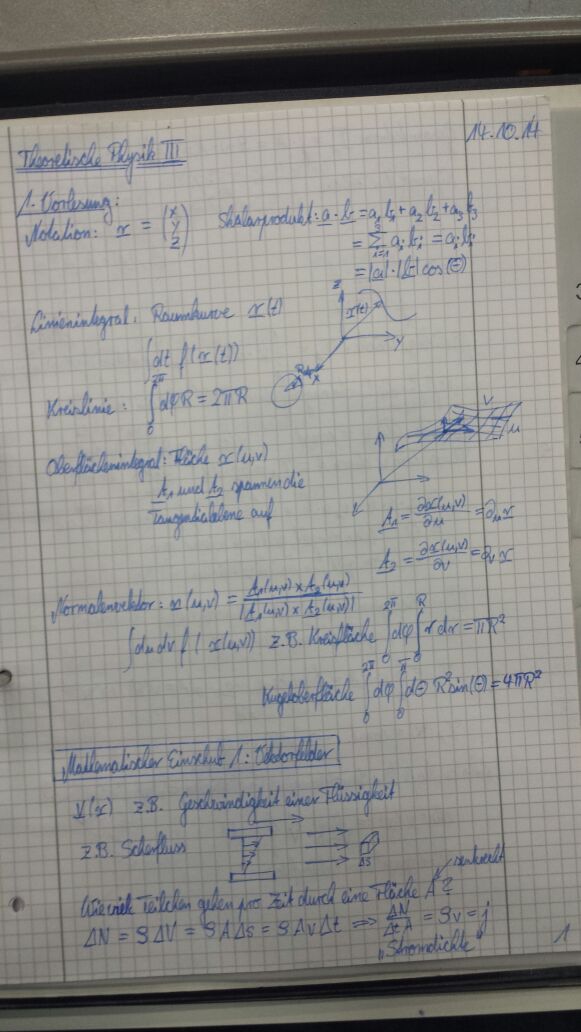 14.10.14
Theoretische Physik III
1. Vorlesung:
Notation: x = (x y z) Skalarprodukt: a · b = a₁b₁ + a₂b₂ + a₃b₃
= ∑ᵢ₌₁³ aᵢbᵢ = aᵢbᵢ
= |a|·|b| cos(Θ)
Linienintegral: Raumkurve x(t)
z
x(t)
y
x
∫dt f(x(t))
Kreislinie: ∫₀^2π dφR = 2πR
R dφ
Oberflächenintegral: Fläche x(u,v)
v
u
A₁ und A₂ spannen die
Tangentialebene auf
A₁ = ∂x(u,v)/∂u = ∂ᵤx
A₂ = ∂x(u,v)/∂v = ∂ᵥx
Normalenvektor: x(u,v) = A₁(u,v) × A₂(u,v) / |A₁(u,v) × A₂(u,v)|
∫du dv f(x(u,v)) z.B. Kreisfläche ∫₀^2π dφ ∫₀^R r dr = πR²
Kugeloberfläche ∫₀^2π dφ ∫₀^π dΘ R² sin(Θ) = 4πR²
Mathematischer Einschub 1: Vektorfelder
V(x) z.B. Geschwindigkeit einer Flüssigkeit
z.B. Scherfluss
Δs
senkrecht
Wieviele Teilchen gehen pro Zeit durch eine Fläche A?
ΔN = ρΔV = ρAΔs = ρAvΔt ⟹ ΔN/ΔtA = ρv = j
„Stromdichte"
1